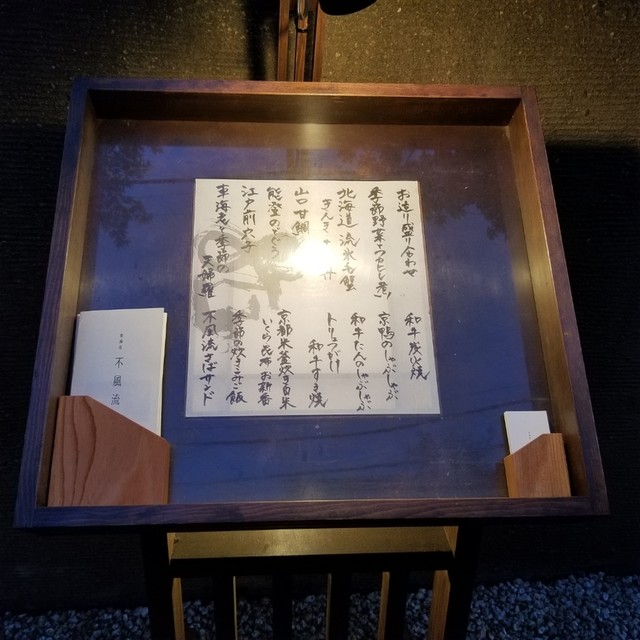 お造り盛り合わせ
季節野菜のひとと煮
北海道 流氷毛蟹
山口甘鯛
能登のどぐろ
江戸前穴子
車海老と季節の 天婦羅
和牛炭火焼
京鴨のしゃぶしゃぶ
和牛たんしゃぶしゃぶ
トリュフがけ 和牛すき焼
京都米釜炊き白米
いくら 香物 お新香
季節の炊き込み飯
不風流さばサンド
不風流